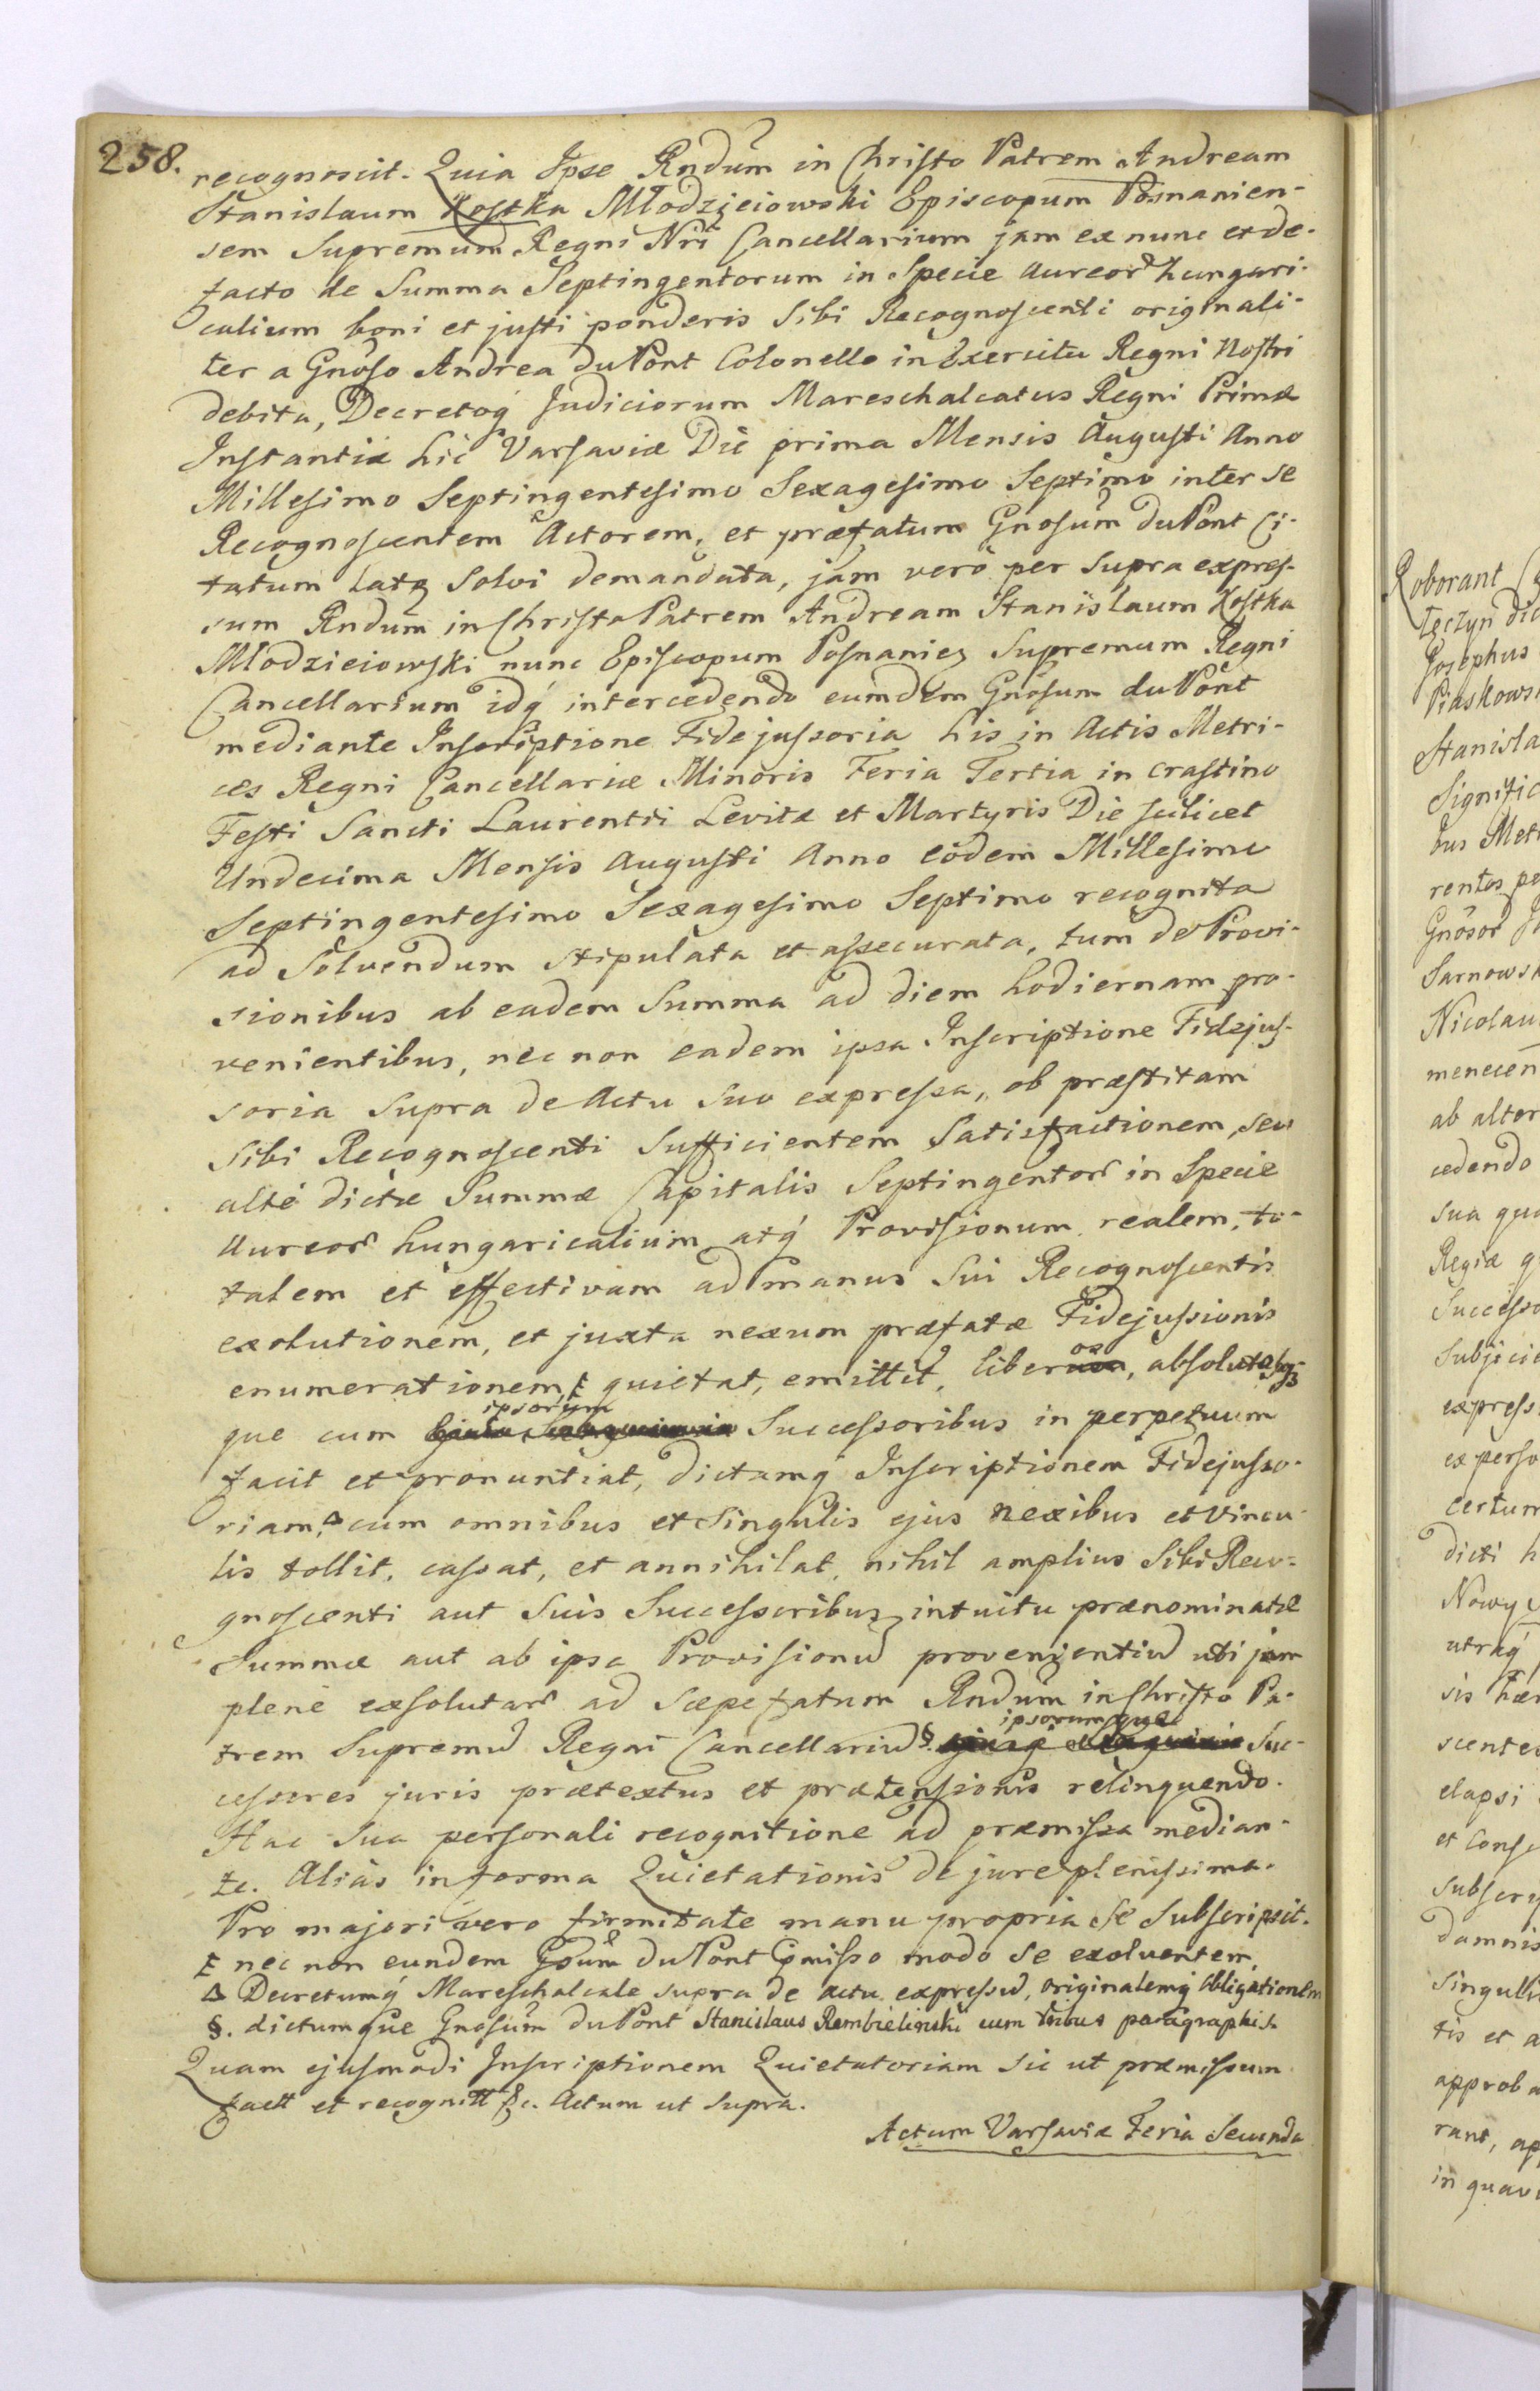 258.
recognoscit. Quia Ipse Rndum in Christo Patrem Andream
Stanislaum Kostka Młodzieiowski Episcopum Posnanien-
sem Supremum Regni Nri Cancellarium jam ex nunc et de-
facto de Summa Septingentorum in Specie Aureor Hungari-
calium boni et justi ponderis Sibi Recognoscenti originali-
ter a Gnoso Andrea duPont Colonello in Exercitu Regni Nostri
debita, Decretoq Judiciorum Mareschalcatus Regni Primæ
Instantiæ hic Varsaviæ Die prima Mensis Augusti Anno
Millesimo Septingentesimo Sexagesimo Septimo inter se
Recognoscentem Actorem, et præfatum Gnosum duPont Ci-
tatum lato Solvi demandata, jam vero per Supra expres-
sum Rndum in Christo Patrem Andream Stanislaum Kostka
Młodzieiowski nunc Episcopum Posnanien Supremum Regni
Cancellarium idq intercedendo eumdem Gnosum duPont
mediante Inscriptione Fidejussoria his in Actis Metri-
ces Regni Cancellariæ Minoris Feria Tertia in crastino
Festi Sancti Laurentii Levitæ et Martyris Die scilicet
Undecima Mensis Augusti Anno eodem Millesimo
Septingentesimo Sexagesimo Septimo recognita
ad Solvendum stipulata et assecurata, tum de Provi-
sionibus ab eadem Summa ad diem hodiernam pro-
venientibus, nec non eadem ipsa Inscriptione Fidejus-
soria supra de Actu suo expressa, ob præstitam
sibi Recognoscenti Sufficientem Satisfactionem, seu
alte dictæ Summæ Capitalis Septingentor in Specie
Aureor Hungaricalium atq Provisionum realem, to-
talem et effectivam ad manus Sui Recognoscentis
exolutionem, et juxta nexum præfatæ Fidejussionis
enumerationem, E quietat, emittit, liberos, absolutos
que cum ipsorum Successoribus in perpetuum
facit et pronuntiat, dictamq Inscriptionem Fidejusso-
riam, Δ cum omnibus et Singulis ejus nexibus et vincu-
lis tollit, cassat, et annihilat, nihil amplius Sibi Reco-
gnoscenti aut Suis Successoribus intuitu prænominatæ
Summæ aut ab ipsa Provisionu provenientiu uti jam
plene exsolutar ad Sæpefatum Rndum in Christo Pa-
trem Supremu Regni Cancellariu § ipsorumque Suc-
cessores juris prætextus et prætensionis relinquendo.
Hac sua personali recognitione ad præmissa median-
te. Alias in forma Quietationis de jure plenissima.
Pro majori vero firmitate manu propria Se Subscripsit.
E nec non eundem Gsum duPont pmisso modo se exolventem,
Δ Decretumq Mareschalcale supra de actu expressu, originalemq obligationem
§. dictumque Gnosum duPont Stanislaus Rembielinski cum tribus paragraphis.
Quam ejusmodi Inscriptionem Quietatoriam sic ut præmissum
factt et recognitt &c. Actum ut supra.
Actum Varsaviæ Feria Secunda
Roborant
Tęczyn
Josephus
Piaskows
Stanisla
Signific
bus Met
rentes pe
Gnosor
Sarnowsk
Nicolau
menecen
ab alter
cedendo
sua qua
Regiæ q
Successo
Subjicie
express
ex perso
certum
dicti h
Nowy
utraq
sis hær
scentes
elapsi
et Conse
subscri
damnis
singulis
tis et a
approba
rant, ap
in quav